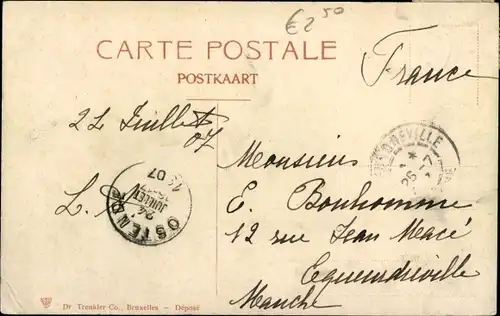 €2 50
CARTE POSTALE
POSTKAART
France
22 Juillet
07
L.
OSTENDE
24
JUILLET
07
25
07
Monsieur
E. Bonhomme
12 rue Jean Macé
Equeurdreville
Manche
Dr Trenkler Co., Bruxelles — Déposé